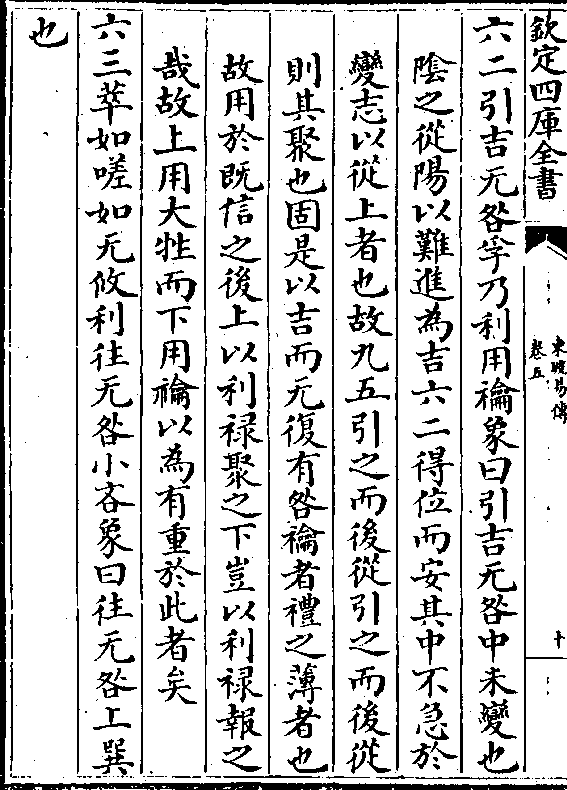 欽定四庫全書
東坡易傳
卷五
十
六二引吉无咎孚乃利用禴象曰引吉无咎中未變也
陰之從陽以難進為吉六二得位而安其中不急於
變志以從上者也故九五引之而後從引之而後從
則其聚也固是以吉而无復有咎禴者禮之薄者也
故用於既信之後上以利禄聚之下豈以利禄報之
哉故上用大牲而下用禴以為有重於此者矣
六三萃如嗟如无攸利往无咎小吝象曰往无咎上巽
也